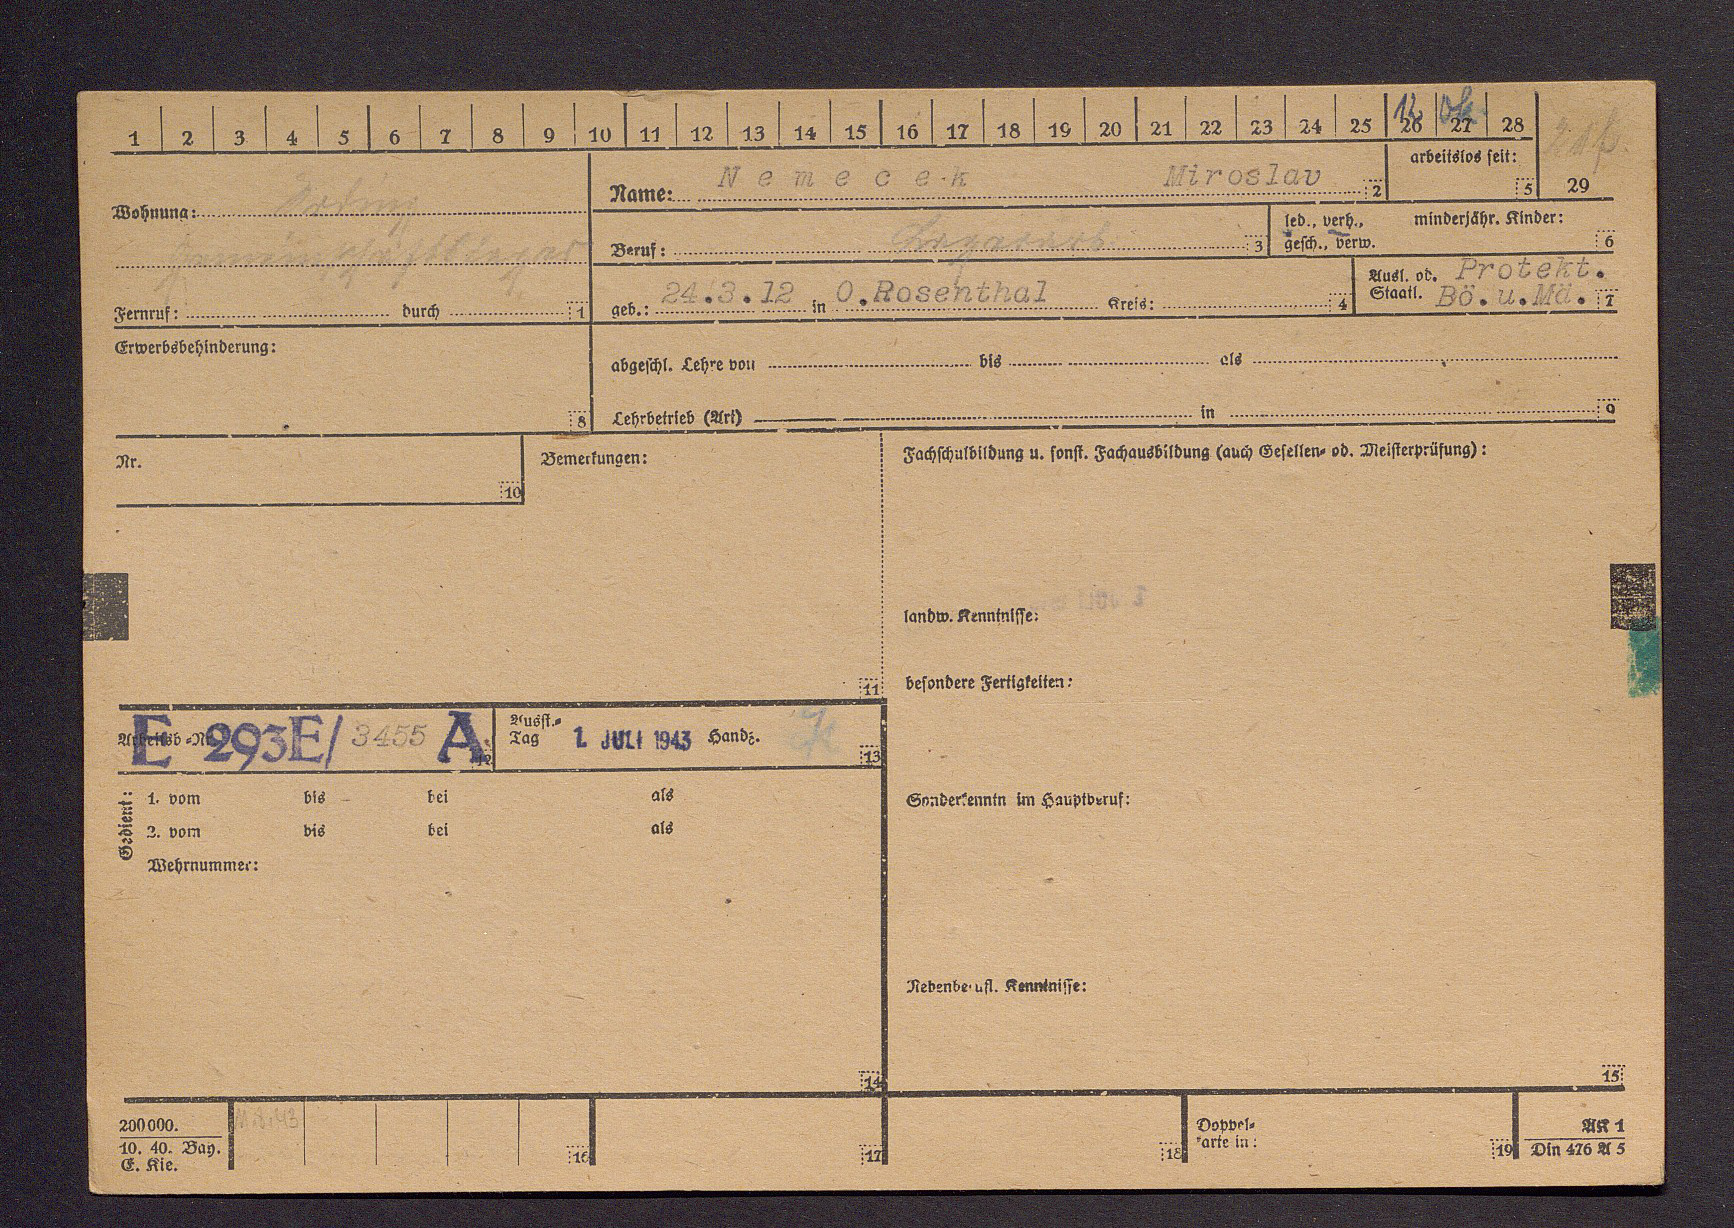 1 2 3 4 5 6 7 8 9 10 11 12 13 14 15 16 17 18 19 20 21 22 23 24 25 26 27 28
12
arbeitslos seit:
5
29
Name: Nemecek Miroslav 2
Wohnung: Erding
Gemeinschaftslager
Beruf: 3
led., verh., minderjähr. Kinder:
gesch., verw. 6
Fernruf: durch 1
geb.: 24.3.12 in O.Rosenthal Kreis: 4
Ausl. od. Protekt.
Staatl. Bö.u.Mä. 7
Erwerbsbehinderung:
8
abgeschl. Lehre von bis als
Lehrbetrieb (Art) in 9
Nr.
10
Bemerkungen:
11
Fachschulbildung u. sonst. Fachausbildung (auch Gesellen- od. Meisterprüfung):
landw. Kenntnisse:
besondere Fertigkeiten:
Arbeitsb.-Nr. E 293E/ 3455 A 12
Ausst.-
Tag 1. JULI 1943 Handz. 13
Gedient:
1. vom bis bei als
2. vom bis bei als
Wehrnummer:
14
Sonderkenntn im Hauptberuf:
Nebenberufl. Kenntnisse:
15
200 000.
10. 40. Bay.
E. Kie.
16
17
18
Doppel-
karte in:
19
AK 1
Din 476 A 5